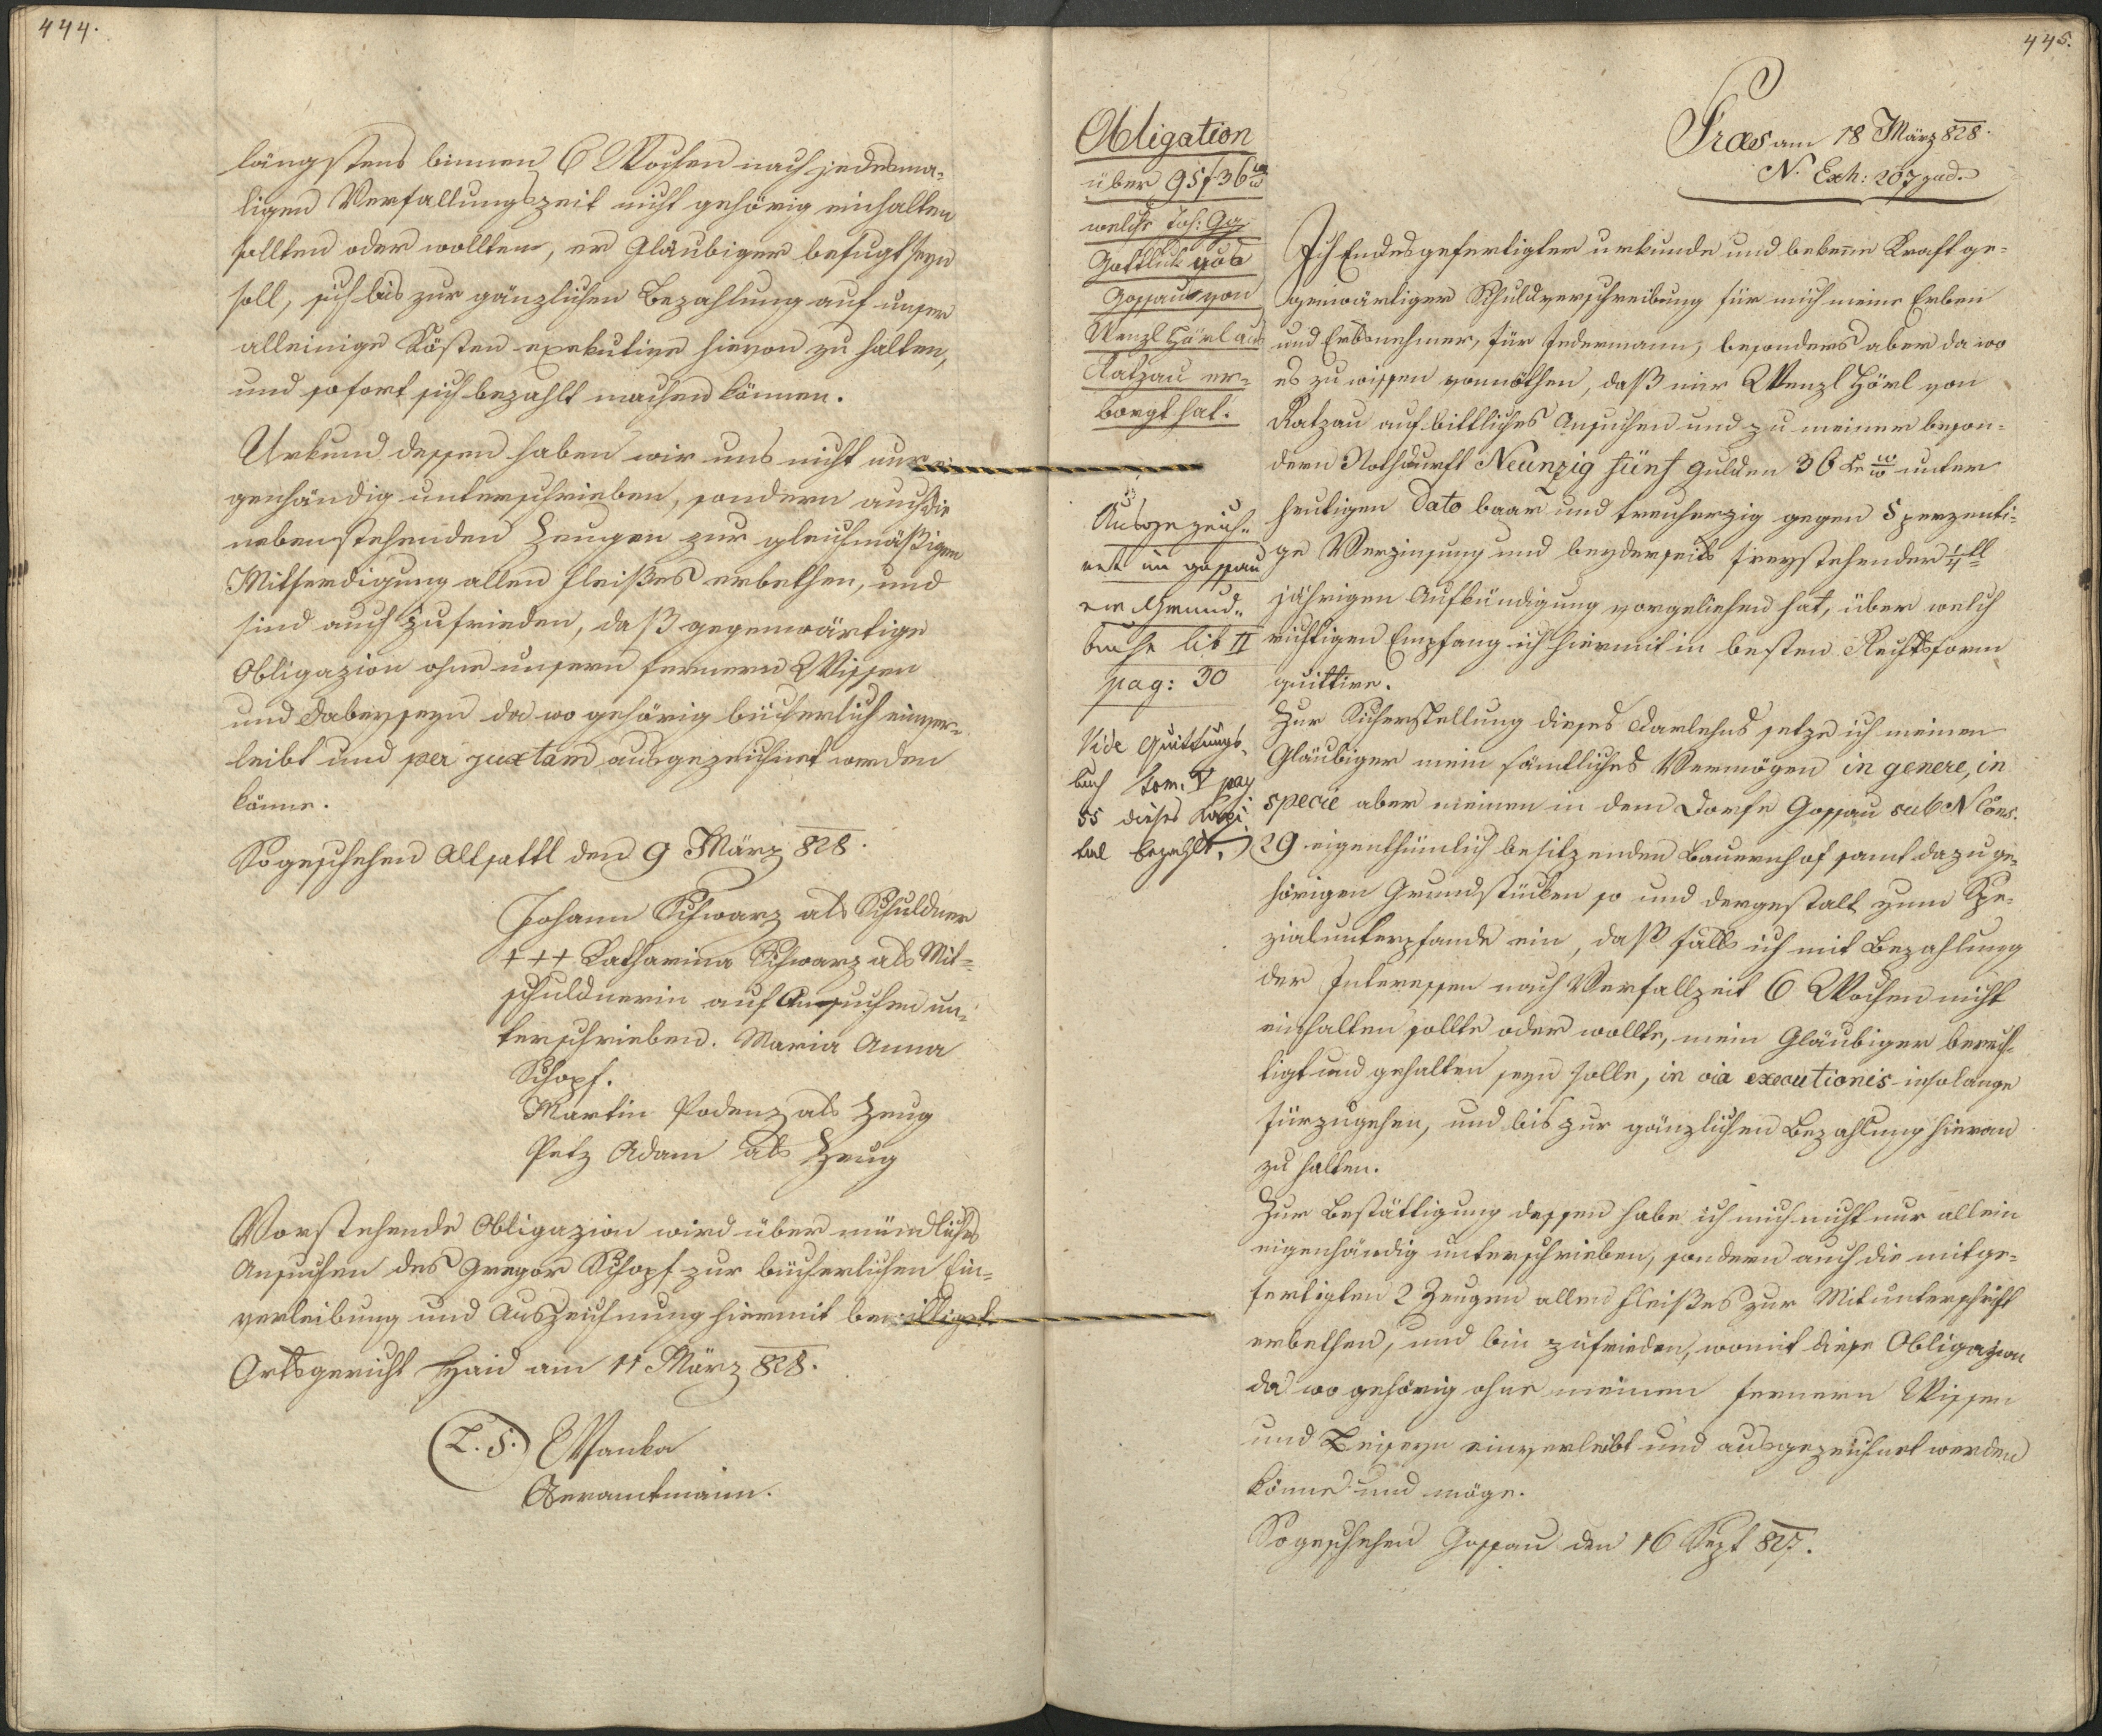 444.
längstens binnen 6 Wochen nach jedesma-
ligen Verfallungszeit nicht gehörig einhalten
sollten oder wollten, er Gläubiger befugt seyn
soll, sich bis zur gänzlichen Bezahlung auf unser
alleinige Kösten exekutive hievon zu halten,
und sofort sich bezahlt machen können.
Urkund dessen haben wir uns nicht nur ei
genhändig unterschrieben, sondern auch die
nebenstehenden Zeugen zur gleichmäßigen
Mitferdigung allen Fleißes erbethen, und
sind auch zufrieden, daß gegenwärtige
Obligazion ohne unsern fernern Wissen
und Dabeyseyn da wo gehörig bücherlich einver-
leibt und per juxtam ausgezeichnet werden
könne.
So geschehen Altsattl den 9 März 828.
Johann Schwarz als Schuldner
+++ Katharina Schwarz als Mit-
schuldnerin auf Ansuchen un-
terschrieben. Maria Anna
Schopf.
Martin Podenz als Zeug
Petz Adam als Zeug
Vorstehende Obligazion wird über mündliches
Ansuchen des Gregor Schopf zur bücherlichen Ein-
verleibung und Auszeichnung hiermit bewilliget.
Ortsgericht Haid am 11 März 828.
(L.S.) Wanka
Oberamtmann.
445.
Præs am 18 März 828.
N. Exh: 207 jud.
Obligation
über 95 f 36
welche Joh: Gg
Gottlieb aus
Gossau von
Wenzl Hörl aus
Ratzau er-
borgt hat.
Ausgezeich-
net im Gossau
er Grund-
buche lib II
pag: 30
Vide Quittungs-
buch tom. V pag
55 dieses Kapi
tal bezahlt.
Ich Endesgefertigter urkunde und bekenne Kraft ge-
genwärtiger Schuldverschreibung für mich meine Erben
und Erbsnehmer, für Jedermann, besonders aber da wo
es zu wissen vonnöthen, daß mir Wenzl Hörl von
Ratzau auf bittliches Ansuchen und zu meiner beson-
dern Nothdurft Neunzig fünf Gulden 36 kr W W unter
heutigen Dato baar und treuherzig gegen 5 perzenti-
ge Verzinsung und beyderseits freystehender 1/4 tl
jährigen Aufkündigung vorgeliehen hat, über welch
richtigen Empfang ich hiermit in besten Rechtsform
quittire.
Zur Sicherstellung dieses Darlehns setze ich meinem
Gläubiger mein sämtliches Vermögen in genere, in
specie aber meinen in dem Dorfe Gossau sub N Cons.
29 eigenthümlich besitzenden Bauernhof samt dazu ge-
hörigen Grundstücken so und dergestalt zum Spe-
zialunterpfande ein, daß falls ich mit Bezahlung
der Interessen nach Verfallzeit 6 Wochen nicht
einhalten sollte oder wollte, mein Gläubiger berech-
tigt und gehalten seyn solle, in via executionis insolange
fürzugehen, und bis zur gänzlichen Bezahlung hievon
zu halten.
Zur Bestättigung dessen habe ich mich nicht nur allein
eigenhändig unterschrieben, sondern auch die mitge-
fertigten 2 Zeugen allen Fleißes zur Mitunterschrift
erbethen, und bin zufrieden, womit diese Obligazion
da wo gehörig ohne meinen fernern Wissen
und Beiseyn einverleibt und ausgezeichnet werden
könne und möge.
So geschehen Gossau den 16 Sept 827.